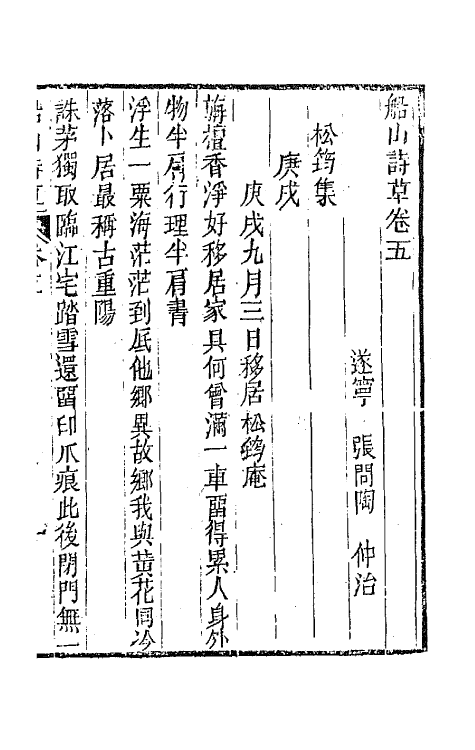 船山詩草卷五
遂寧 張問陶 仲冶
松筠集
庚戌
庚戌九月三日移居松筠庵
旃檀香淨好移居家具何曾滿一車留得累人身外
物半肩行理半肩書
浮生一粟海茫茫到底他鄉異故鄉我與黃花同冷
落卜居最稱古重陽
誅茅獨取臨江宅踏雪還留印爪痕此後閉門無一